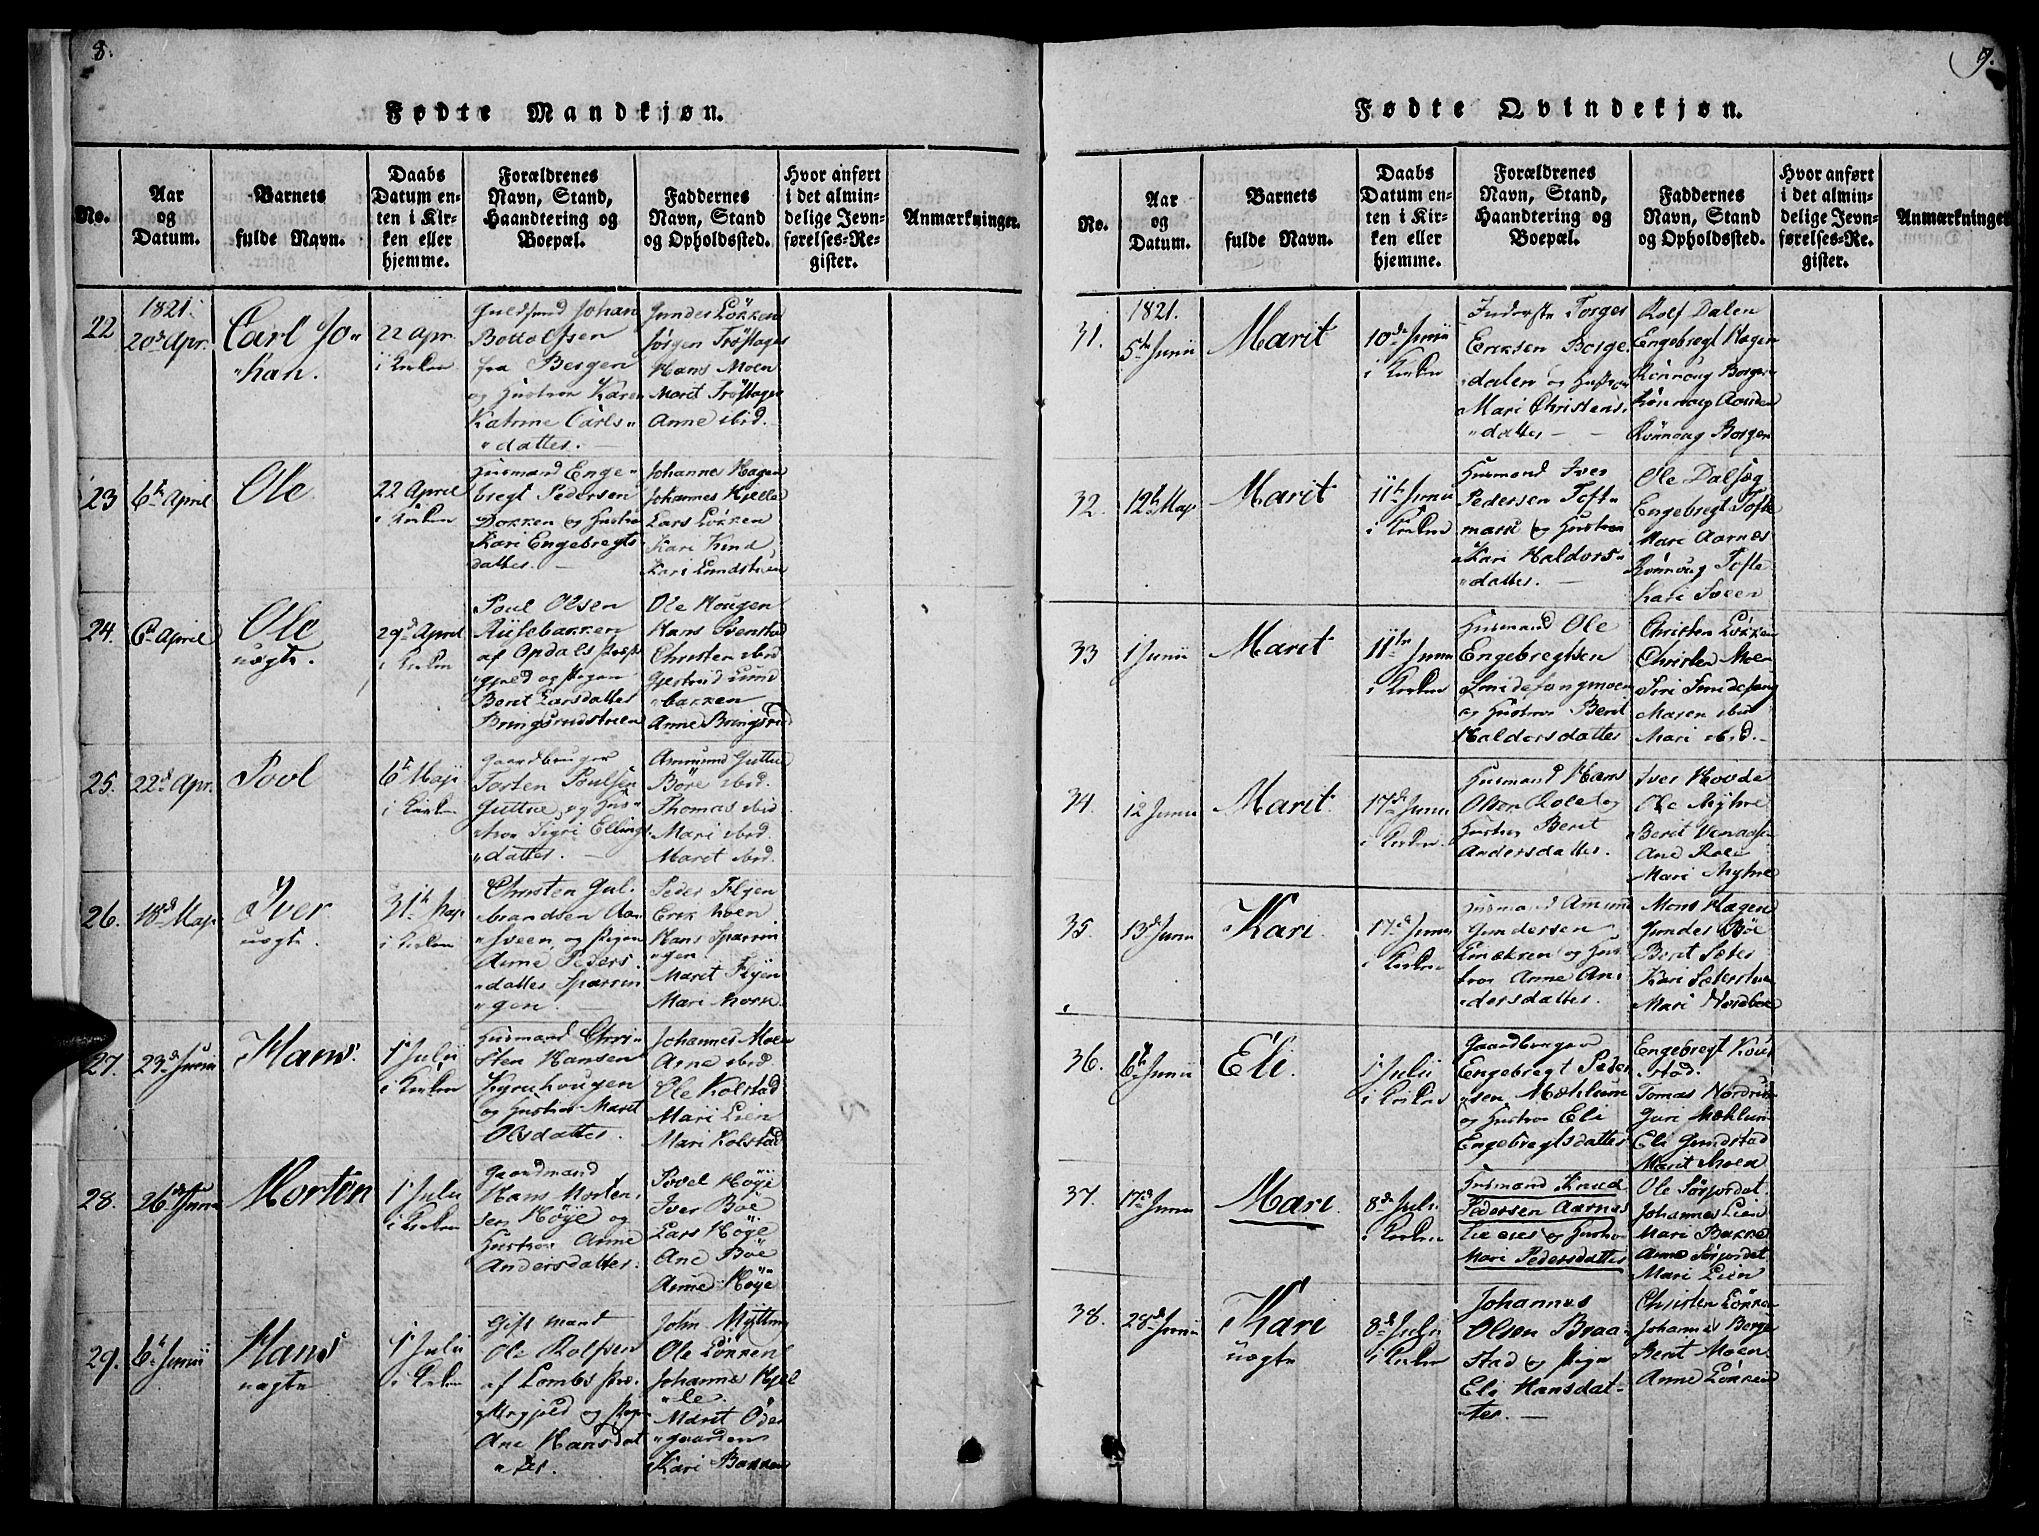 8.
Fødte Mandkjøn.
No.
Aar
og
Datum.
Barnets
fulde Navn.
Daabs
Datum en-
ten i Kir-
ken eller
hjemme.
Forældrenes
Navn, Stand,
Haandtering og
Boepæl.
Faddernes
Navn, Stand
og Opholdssted.
Hvor anført
i det almin-
delige Jevn-
førelses-Re-
gister.
Anmærkninger.
22
1821.
20de Apr.
Carl Jo„
„han.
22 Apr.
i Kirken
Johan
Bottolfsen
fra Bergen
og Hustroe Karen
Katrine Carls„
„datter.
Gunder Løkken
Jørgen Trøstager
Hans Moen
Marit Trøstager
Anne ibid.
23
6te April
Ole
22 April
i Kirken
Husmand Enge„
bregt Pedersen
Dokken og Hustroe
Kari Engebregts
datter.
Johannes Hagen
Johannes Kjelle
Lars Løkken
Kari
Kari
24.
6te April
Ole
uægte.
29de April
i Kirken
Poul Olsen
af Opdals Præst„
gjeld og Pigen
Berit Larsdatter
Bringsrudstueen
Ole Hougen
Hans Svenstad
Christen ibid
bakken
Anne Bringsrud
25.
22de Apr.
Povl
6te Maji
i Kirken
Gaardbruger
Torsten Poulsen
Guttue, og Hus„
troe Sigri Ellings„
„datter.
Amund Guttue
Børe ibid.
Thomas ibid
Mari ibid.
Marit ibid.
26.
18de Maji
Iver
uægte.
31te Maji
i Kirken
Christen Gul„
brandsen Aa„
„sveen, og Pigen
Anne Peders„
„datter Sparrin„
„gen.
Peder Flyen
Erik Moen
Hans Sparrin„
„gen.
Marit Flyen
Mari Moen
27.
23de Junii
Hans.
1te Julii
i Kirken
Husmand Chris„
sten Hansen
og Hustroe Marit
Olsdatter.
Johannes Moen
Anne ibid.
Ole Kolstad
Mari Lien
Mari Kolstad
28.
26de Junii
Morten
1te Julii
i Kirken
Gaardmand
Hans Morten„
sen Høye og
Hustroe Anne
Andersdatter.
Povel Høye
Iver Bøe
Lars Høye
Ane Bøe
Anne Høye
29.
6te Junii
Hans
uægte
1te Julii
i Kirken
Gift mand
Ole Rolfsen
af Lombs Præ„
stegjeld og Pigen
Ane Hansdat
„ter.
John Mytting
Ole Løkken
Johannes Kjel
„le.
Marit Øde„
„gaarden
Kari Bakken
9.
Fødte Qvindekjøn.
No.
Aar
og
Datum.
Barnets
fulde Navn.
Daabs
Datum en-
ten i Kir-
ken eller
hjemme.
Forældrenes
Navn, Stand,
Haandtering og
Boepæl.
Faddernes
Navn, Stand
og Opholdssted.
Hvor anført
i det almin-
delige Jevn-
førelses-Re-
gister.
Anmærkninger
31.
1821.
5te Junii
Marit
10de Junii
i Kirken
Inderste Torger
Eriksen Borge„
„dalen og Hustroe
Mari Christens„
„datter
Rolf Dalen
Engebregt Hagen
Rønnoug Borgen
Rønnoug
Rønnoug Borgen
32.
12te Maji
Marit
11te Junii
i Kirken
Husmand Iver
Pedersen Toft„
mark og Hustroe
Kari Haldors„
„datter.
Ole Dalseg
Engebregt Tofte
Mari Aarnes
Rønnoug Tofte
Kari Sveen
33
1 Junii
Marit
11te Junii
i Kirken
Husmand Ole
Engebregtsen
Smidesangmoen
og Hustroe Berit
Haldorsdatter
Christen Løkken
Christen Moen
Siri Smidesang
Maren ibid
Mari ibid.
34.
12 Junii
Marit
17de Junii
i Kirken
Husmand Hans
Olsen og
Hustroe Berit
Andersdatter.
Iver Hovde
Ole Myhre
Berit
Ane
Mari Myhre
35.
13de Junii
Kari
17de Junii
i Kirken
Husmand Amund
Gundersen
og Hus„
troe Anne An„
„dersdatter.
Mons Hagen
Gunder Bøe
Berit Sæter
Kari Sæterstuen
Mari
36.
6te Junii
Eli.
1 Julii
i Kirken
Gaardbruger
Engebregt Peder„
„sen Mæhlum
og Hustroe Eli
Engebregtsdatter
Engebregt Kol„
„stad.
Tomas Nordrum
Guri Mæhlum
Eli Gundstad
Marit Moen
37.
17de Junii
Mari.
8de Julii
i Kirken
Husmand Knud
Pedersen Aarnes
og Hustroe
Mari Pedersdatter
Ole Sørjordet
Johannes Lien
Mari Bakke
Anne Sørjordet
Mari Lien
38.
28de Junii
Kari
uægte
8de Julii
i Kirken
Johannes
Olsen Braa„
stad og Pige
Eli Hansdat„
„ter.
Christen Løkken
Johannes Borgen
Berit Moen
Anne Løkken